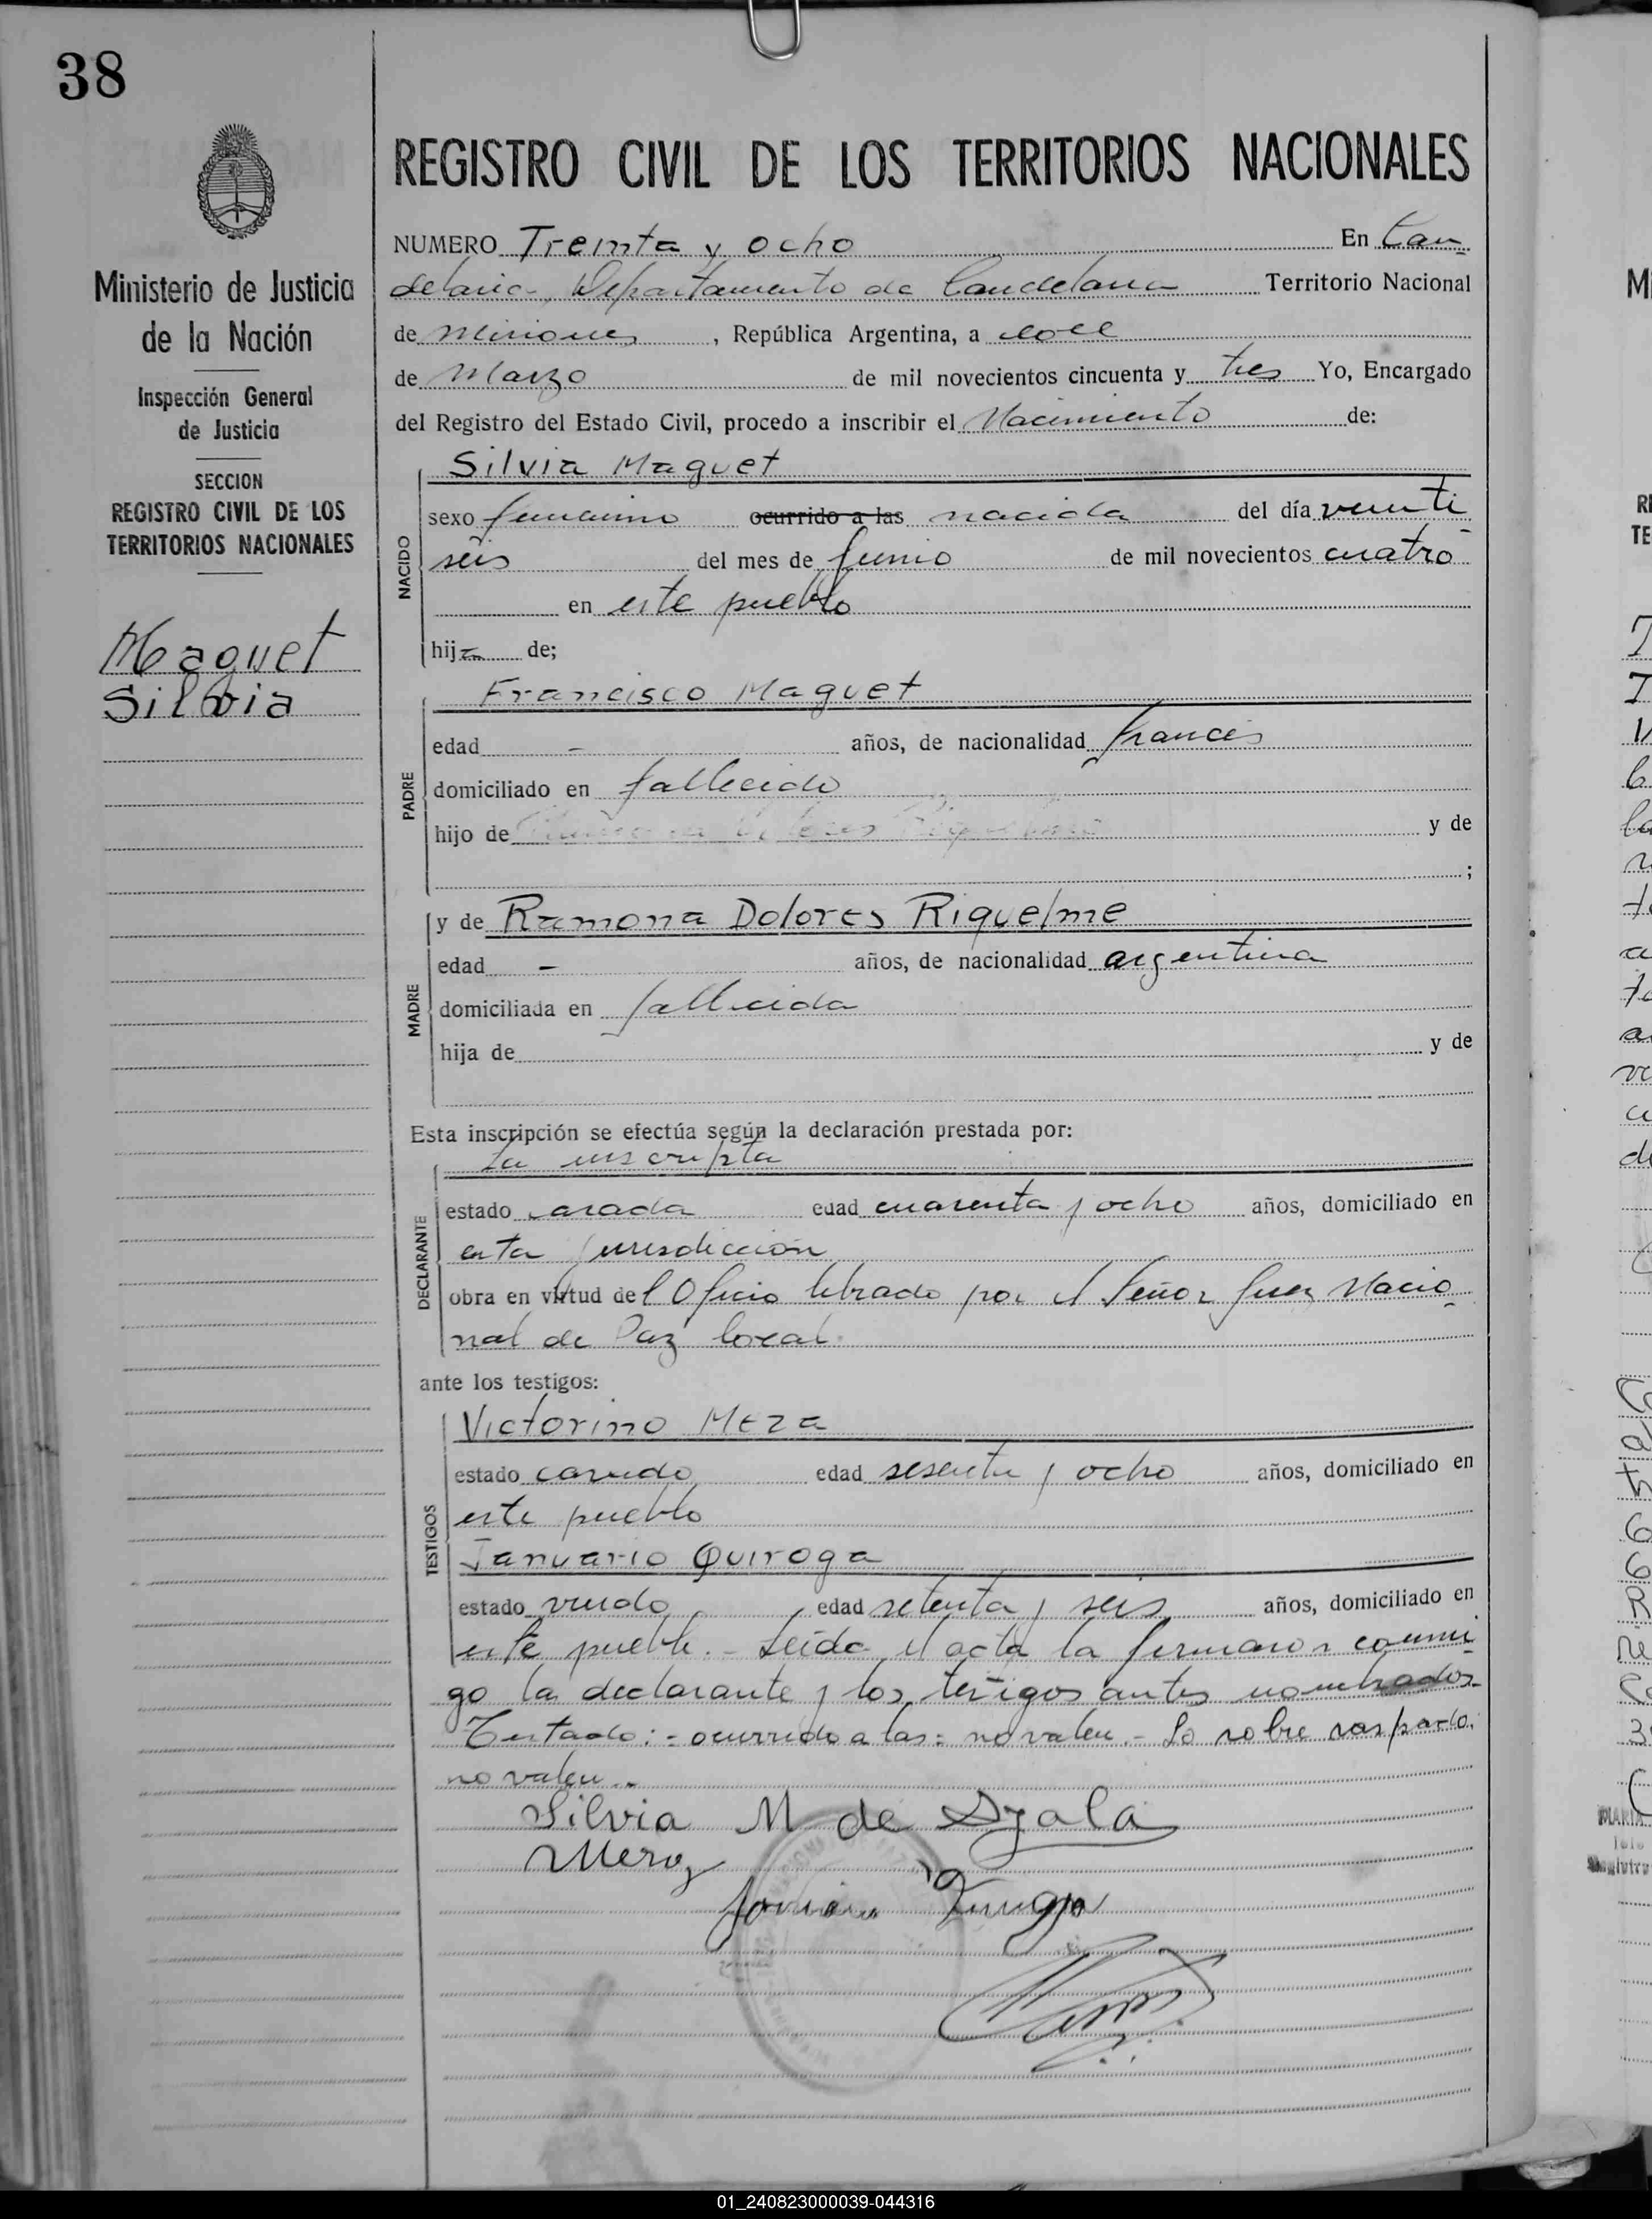 38
REGISTRO CIVIL DE LOS TERRITORIOS NACIONALES
Ministerio de Justicia
de la Nación
Inspección General
de Justicia
SECCION
REGISTRO CIVIL DE LOS
TERRITORIOS NACIONALES
Maguet
Silvia
NUMERO Treinta y ocho En Can
delaria, Departamento de Candelaria Territorio Nacional
de Misiones, República Argentina, a doce
de Marzo de mil novecientos cincuenta y tres Yo, Encargado
del Registro del Estado Civil, procedo a inscribir el Nacimiento de:
NACIDO
Silvia Maguet
sexo femenino ocurrido a las nacida del día veinti
seis del mes de Junio de mil novecientos cuatro
en este pueblo
hija de;
PADRE
Francisco Maguet
edad - años, de nacionalidad francés
domiciliado en fallecido
hijo de y de
;
MADRE
y de Ramona Dolores Riquelme
edad - años, de nacionalidad argentina
domiciliada en fallecida
hija de y de
Esta inscripción se efectúa según la declaración prestada por:
DECLARANTE
La inscripta
estado casada edad cuarenta y ocho años, domiciliado en
esta jurisdicción
obra en virtud del Oficio librado por el Señor Juez Nacio
nal de Paz local.
ante los testigos:
TESTIGOS
Victorino Meza
estado casado edad sesenta y ocho años, domiciliado en
este pueblo
Januario Quiroga
estado viudo edad setenta y seis años, domiciliado en
este pueblo.- Leida el acta la firmaron conmi
go la declarante y los testigos antes nombrados.
Testado:- ocurrido a las: no valen.- Lo sobre raspado:
no valen..
Silvia M de Ayala
Meza
01_240823000039-044316